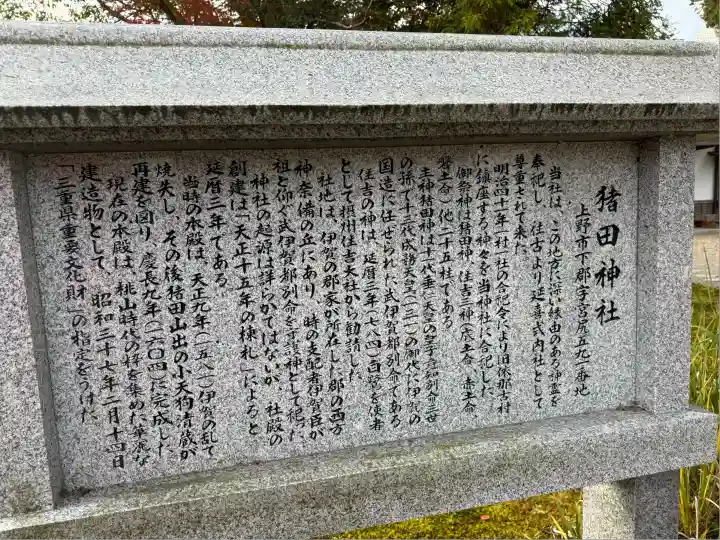 猪田神社
上野市下郡字宮尻五九二番地
当社は、この地方に深い縁由のある神霊を
奉祀し、往古より延喜式内社として
尊重されて来た。
明治四十年一村一社の合祀令により旧依那古村
に鎮座する神々を当神社に合祀した。
御祭神は猪田神、住吉三神(底土命、赤土命
磐土命)他二十五社である。
主神猪田神は十一代垂仁天皇の皇子意知別命三世
の孫で十三代成務天皇(一三一)の御代に伊賀の
国造に任ぜられた武伊賀都別命である
住吉の神は、延暦三年(七八四)白鷺を使者
として摂州住吉大社から勧請した。
社地は、伊賀の郡家が所在した郡の西方
神奈備の丘にあり、時の支配者伊賀臣が
祖と仰ぐ武伊賀都別命を守護神として祀った
神社の起源は詳らかではないが、社殿の
創建は「天正十五年の棟札」によると
延暦三年である。
当時の本殿は、天正九年(一五八一)伊賀の乱で
焼失し、その後猪田山出の小天狗清蔵が
再建を図り、慶長九年(一六〇四)に完成した
現在の本殿は、桃山時代の粋を集めた華麗な
建造物として、昭和三十七年二月十四日
「三重県重要文化財」の指定をうけた。